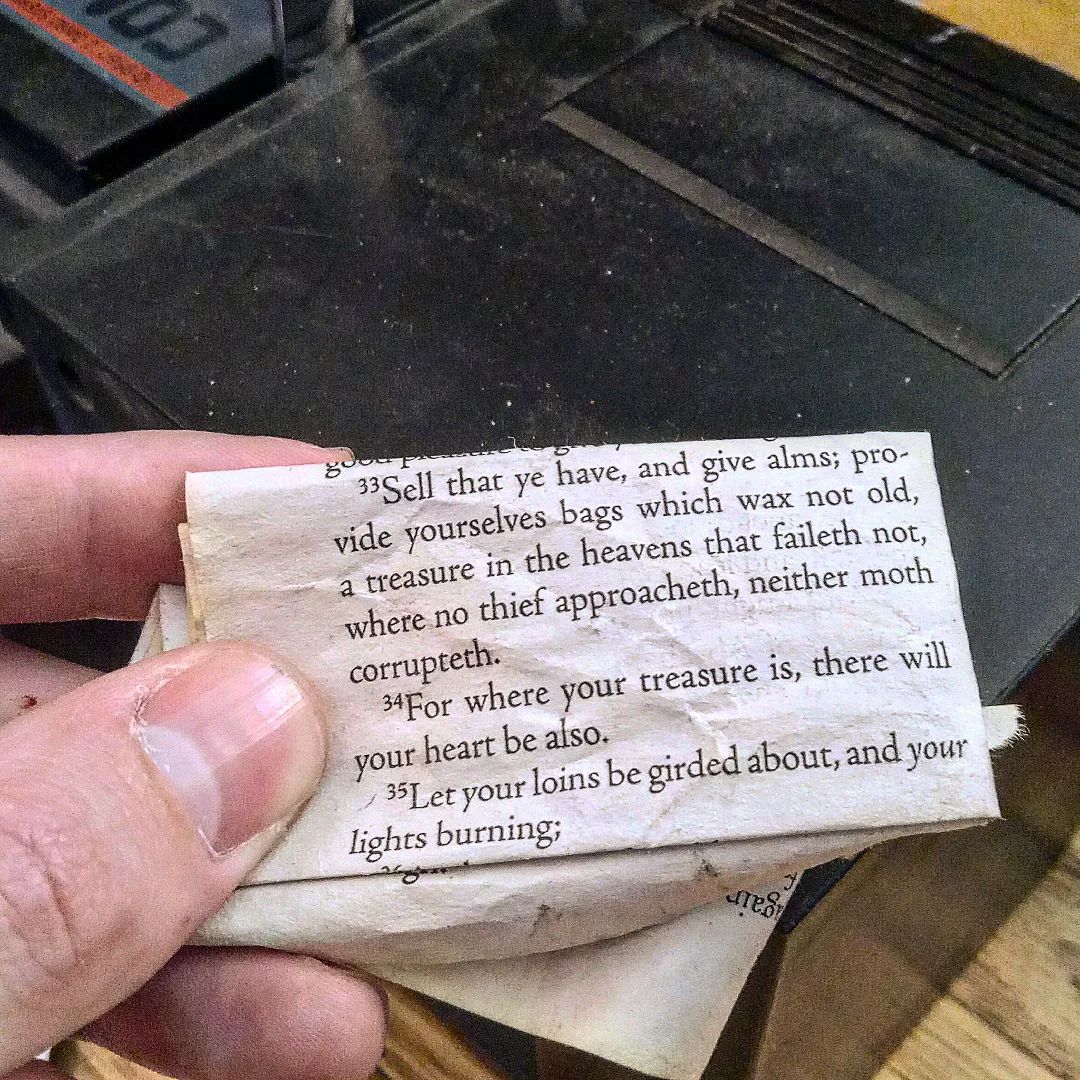 good pleasure to give
³³Sell that ye have, and give alms; pro-
vide yourselves bags which wax not old,
a treasure in the heavens that faileth not,
where no thief approacheth, neither moth
corrupteth.
³⁴For where your treasure is, there will
your heart be also.
³⁵Let your loins be girded about, and your
lights burning;